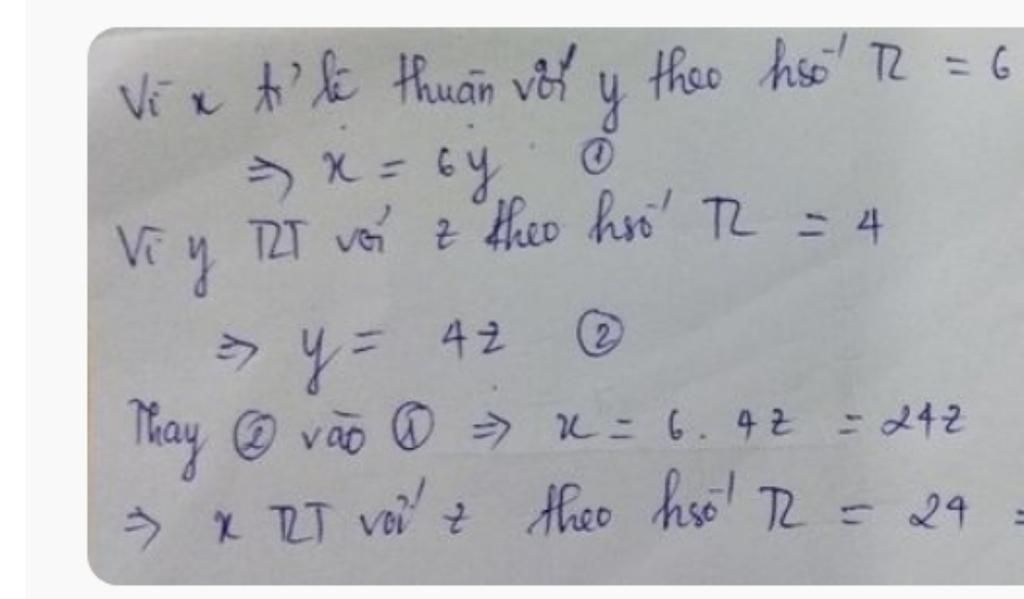 Vì x tỉ lệ thuận với y theo hsố TL = 6
⇒ x = 6y ①
Vì y TLT với z theo hsố TL = 4
⇒ y = 4z ②
Thay ② vào ① ⇒ x = 6. 4z = 24z
⇒ x TLT với z theo hsố TL = 24 =